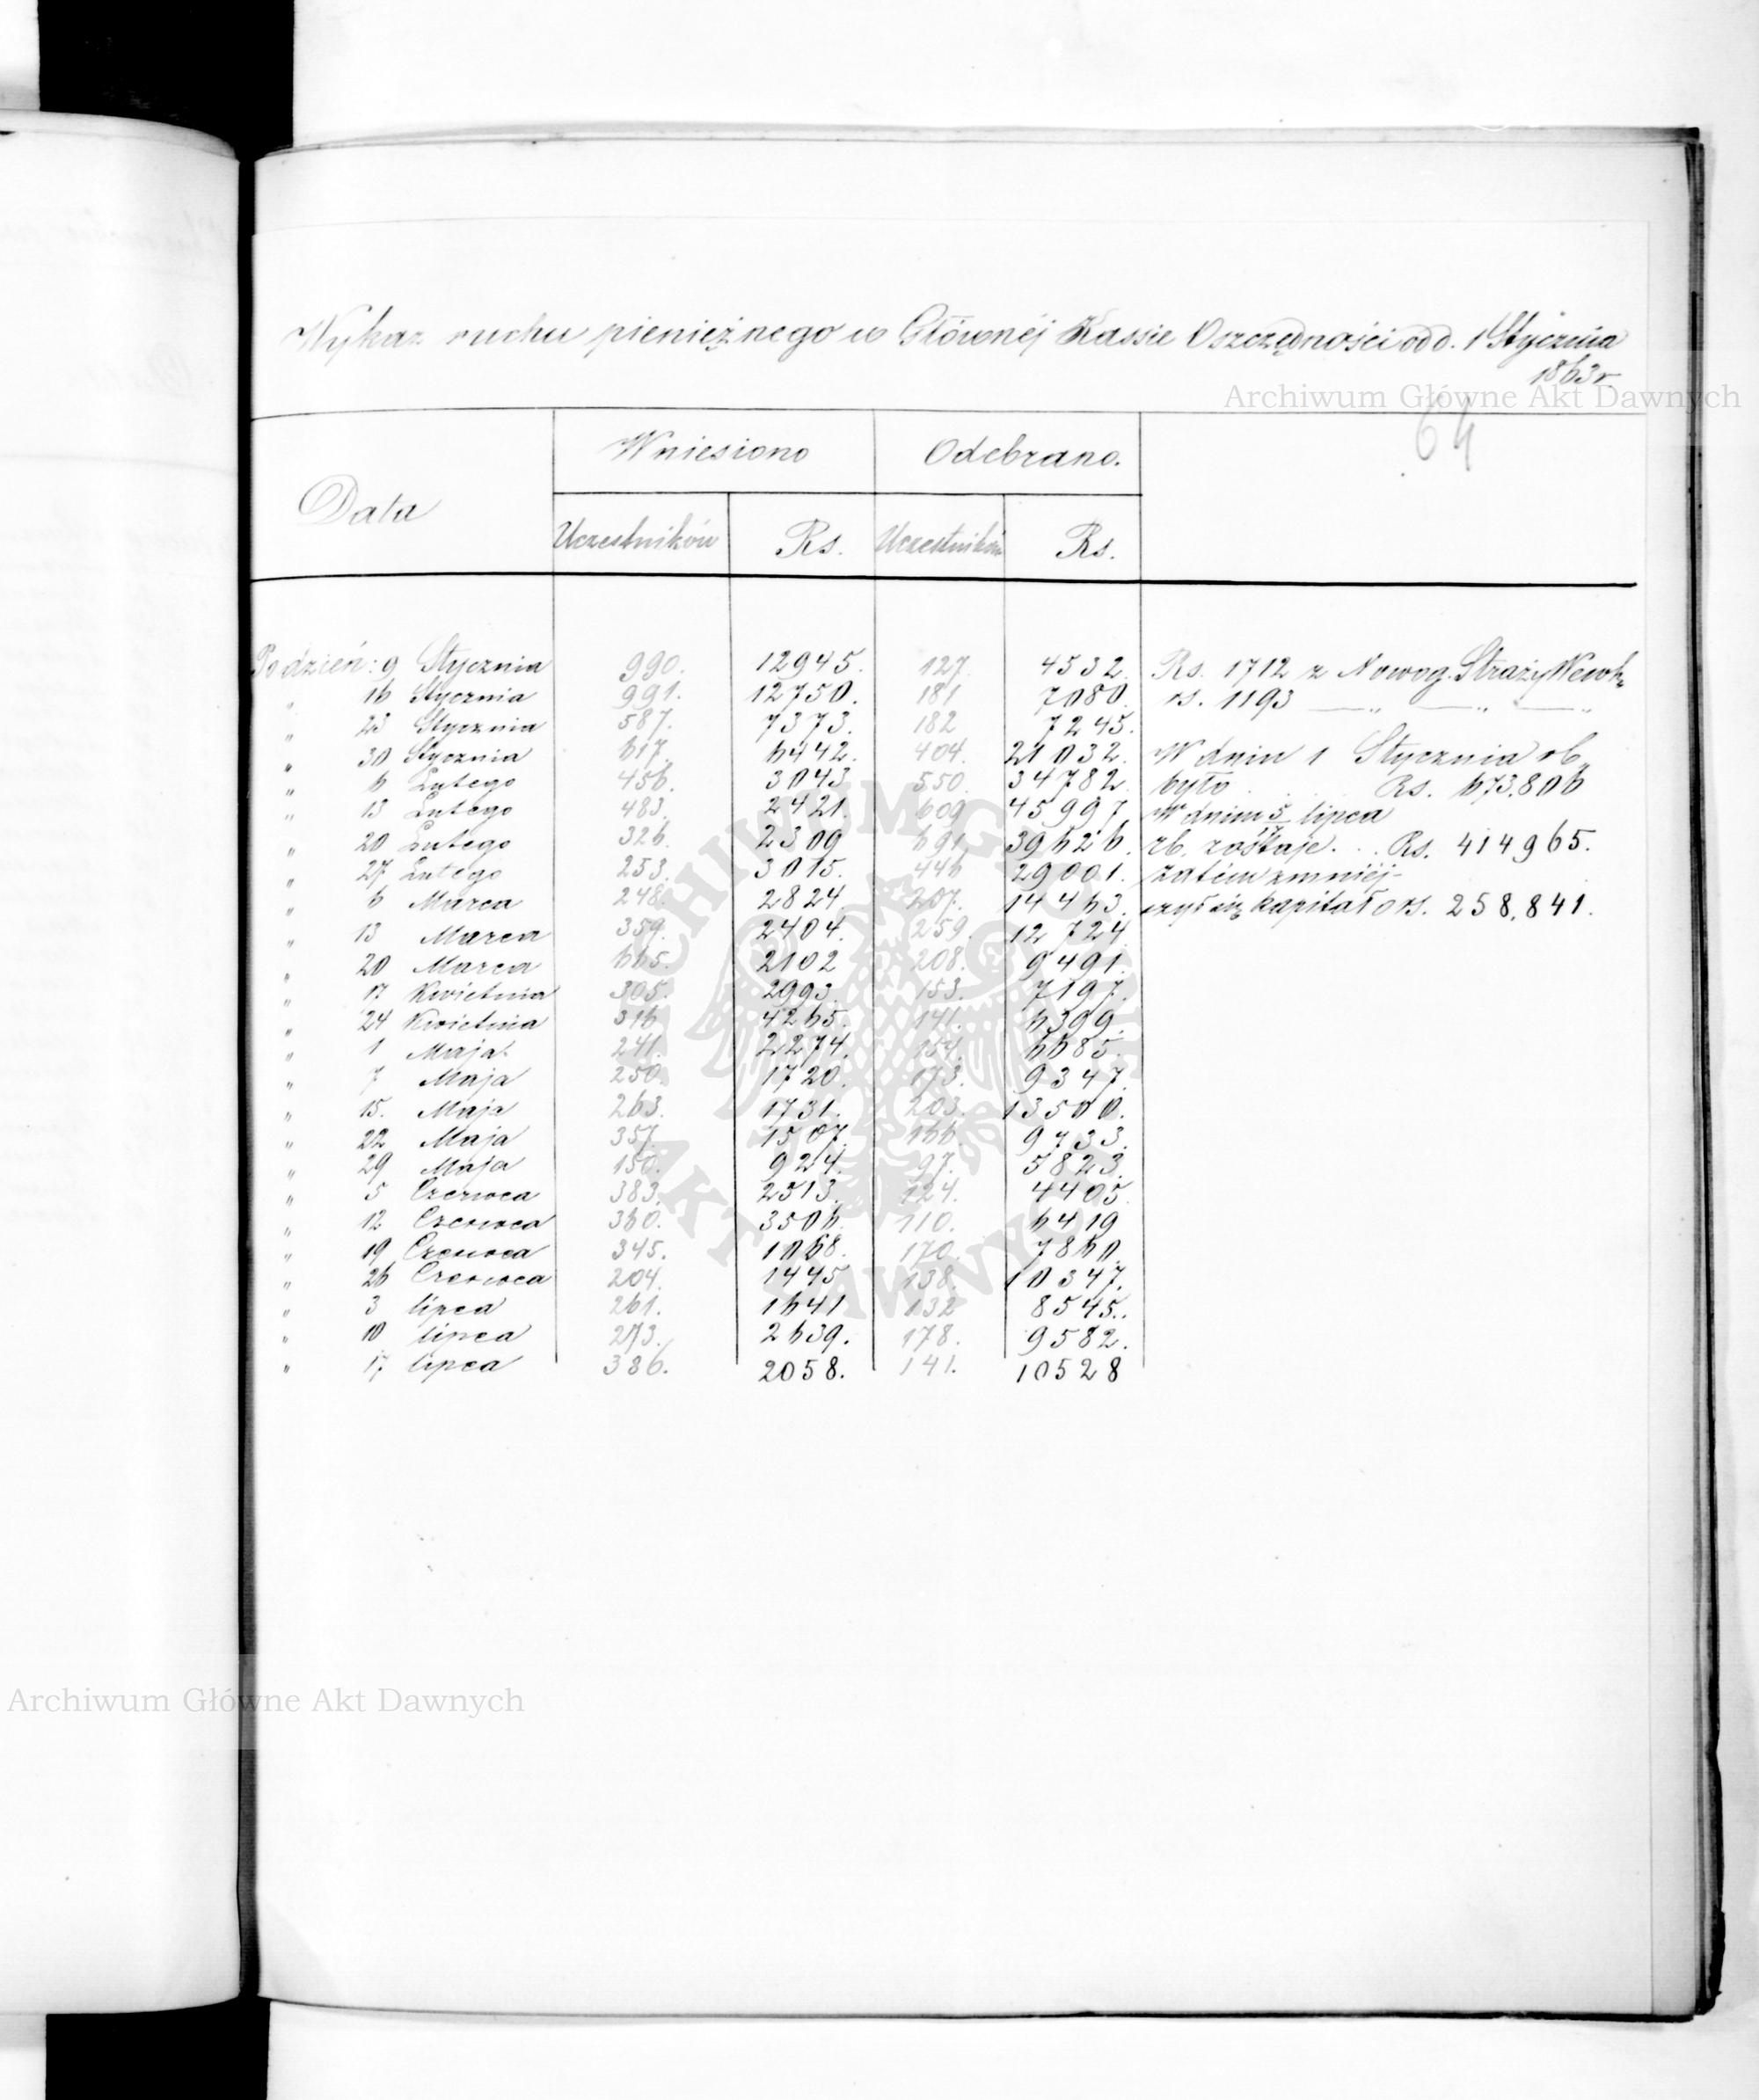 Wykaz ruchu pieniężnego w Głównéj Kassie Oszczędności od d. 1 Stycznia
1863 r.
Archiwum Główne Akt Dawnych
64
Data Wniesiono Odebrano.
Uczestników Rs. Uczestników Rs.
Po dzień: 9 Stycznia 990. 12945. 127. 4532 Rs. 1712 z Nowog. Straży
„ 16 Stycznia 991. 12750. 181 7080. rs. 1193 — „ — „ — „
„ 23 Stycznia 587. 7373. 182 7245.
„ 30 Stycznia 617. 6442. 404. 21032. W dniu 1 Stycznia rb.
„ 6 Lutego 456. 3043 550. 34782. było . . Rs. 673.806
„ 13 Lutego 483. 2421. 609 45997 W dniu 5/17 lipca
„ 20 Lutego 326. 2309 691 39626. rb. zostaje . . . Rs. 414965.
„ 27 Lutego 253. 3015. 446 29001. zatém zmniéj-
„ 6 Marca 248. 2824. 207. 14463. szył się kapitał o rs. 258,841.
„ 13 Marca 359. 2404. 259. 12724
„ 20 Marca 665. 2102 208. 9491.
„ 17 Kwietnia 305. 2993. 153. 7197.
„ 24 Kwietnia 316 4265. 141. 6399.
„ 1 Maja 241. 2274. 154. 6685.
„ 7 Maja 250. 1720. 173. 9347.
„ 15. Maja 263. 1731. 203. 13500.
„ 22 Maja 357. 1507. 166. 9733.
„ 29 Maja 150. 924. 97. 5823.
„ 5 Czerwca 383. 2513. 124. 4405
„ 12 Czerwca 360. 3506. 110. 6419
„ 19 Czerwca 345. 1068. 170. 7860.
„ 26 Czerwca 204. 1445 138. 10347.
„ 3 lipca 261. 1641 132 8545..
„ 10 lipca 273. 2639. 178. 9582.
„ 17 lipca 336. 2058. 141. 10528
ARCHIWUM GŁÓWNE AKT DAWNYCH
Archiwum Główne Akt Dawnych